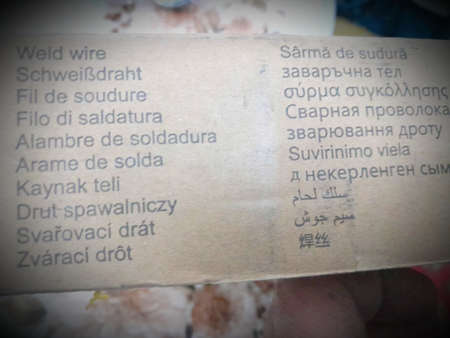 Weld wire
Schweißdraht
Fil de soudure
Filo di saldatura
Alambre de soldadura
Arame de solda
Kaynak teli
Drut spawalniczy
Svařovací drát
Zvárací drôt
Sârmă de sudură
заваръчна тел
σύρμα συγκόλλησης
Сварная проволока
зварювання дроту
Suvirinimo viela
д некерленген сым
سلك لحام
سیم جوش
焊丝